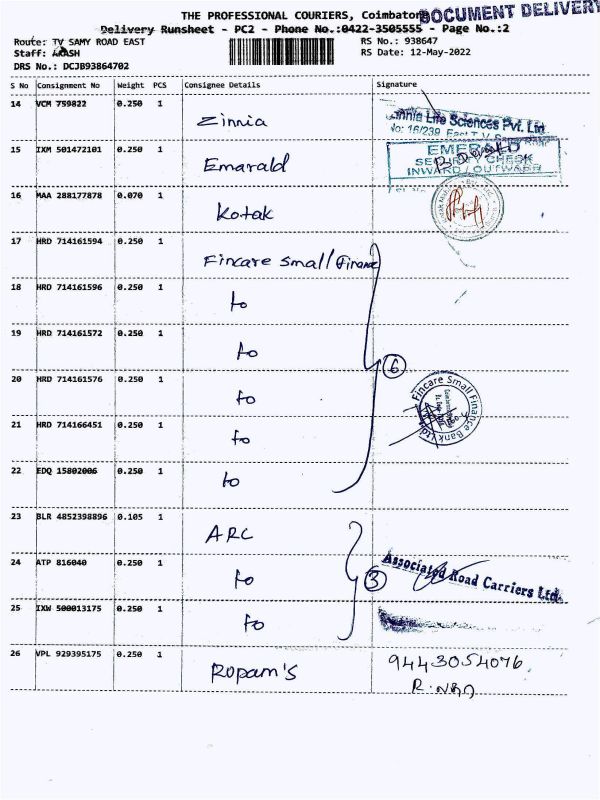 THE PROFESSIONAL COURIERS, Coimbatore
DOCUMENT DELIVERY
Delivery Runsheet - PC2 - Phone No.:0422-3505555 - Page No.:2
Route: TV SAMY ROAD EAST RS No.: 938647
Staff: AKASH RS Date: 12-May-2022
DRS No.: DCJB93864702
S No Consignment No Weight PCS Consignee Details Signature
14 VCM 759822 0.250 1 Zinnia
Zinnia Life Sciences Pvt. Ltd.
No: 16/239, East T.V. Samy Road
15 IXM 501472101 0.250 1 Emarald
EMERALD
SECURITY CHECK
INWARD / OUTWARD
16 MAA 288177878 0.070 1 Kotak
17 HRD 714161594 0.250 1 Fincare Small Finance
18 HRD 714161596 0.250 1 to
19 HRD 714161572 0.250 1 to
6
20 HRD 714161576 0.250 1 to
Fincare Small Finance Bank Ltd
21 HRD 714166451 0.250 1 to
22 EDQ 15802006 0.250 1 to
23 BLR 4852398896 0.105 1 ARC
24 ATP 816040 0.250 1 to
3
Associated Road Carriers Ltd.
25 IXW 500013175 0.250 1 to
26 VPL 929395175 0.250 1 Ropam's
9443054076